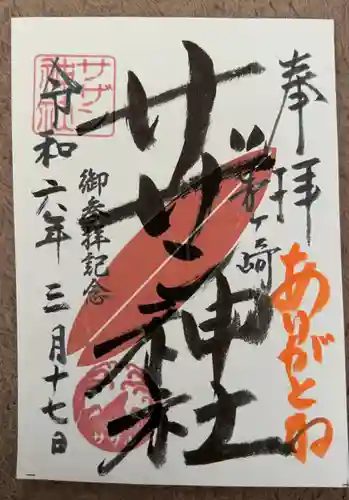 奉拝
茅ヶ崎
ありがとね
サザン神社
御参拝記念
令和六年三月十七日
サザン
神社